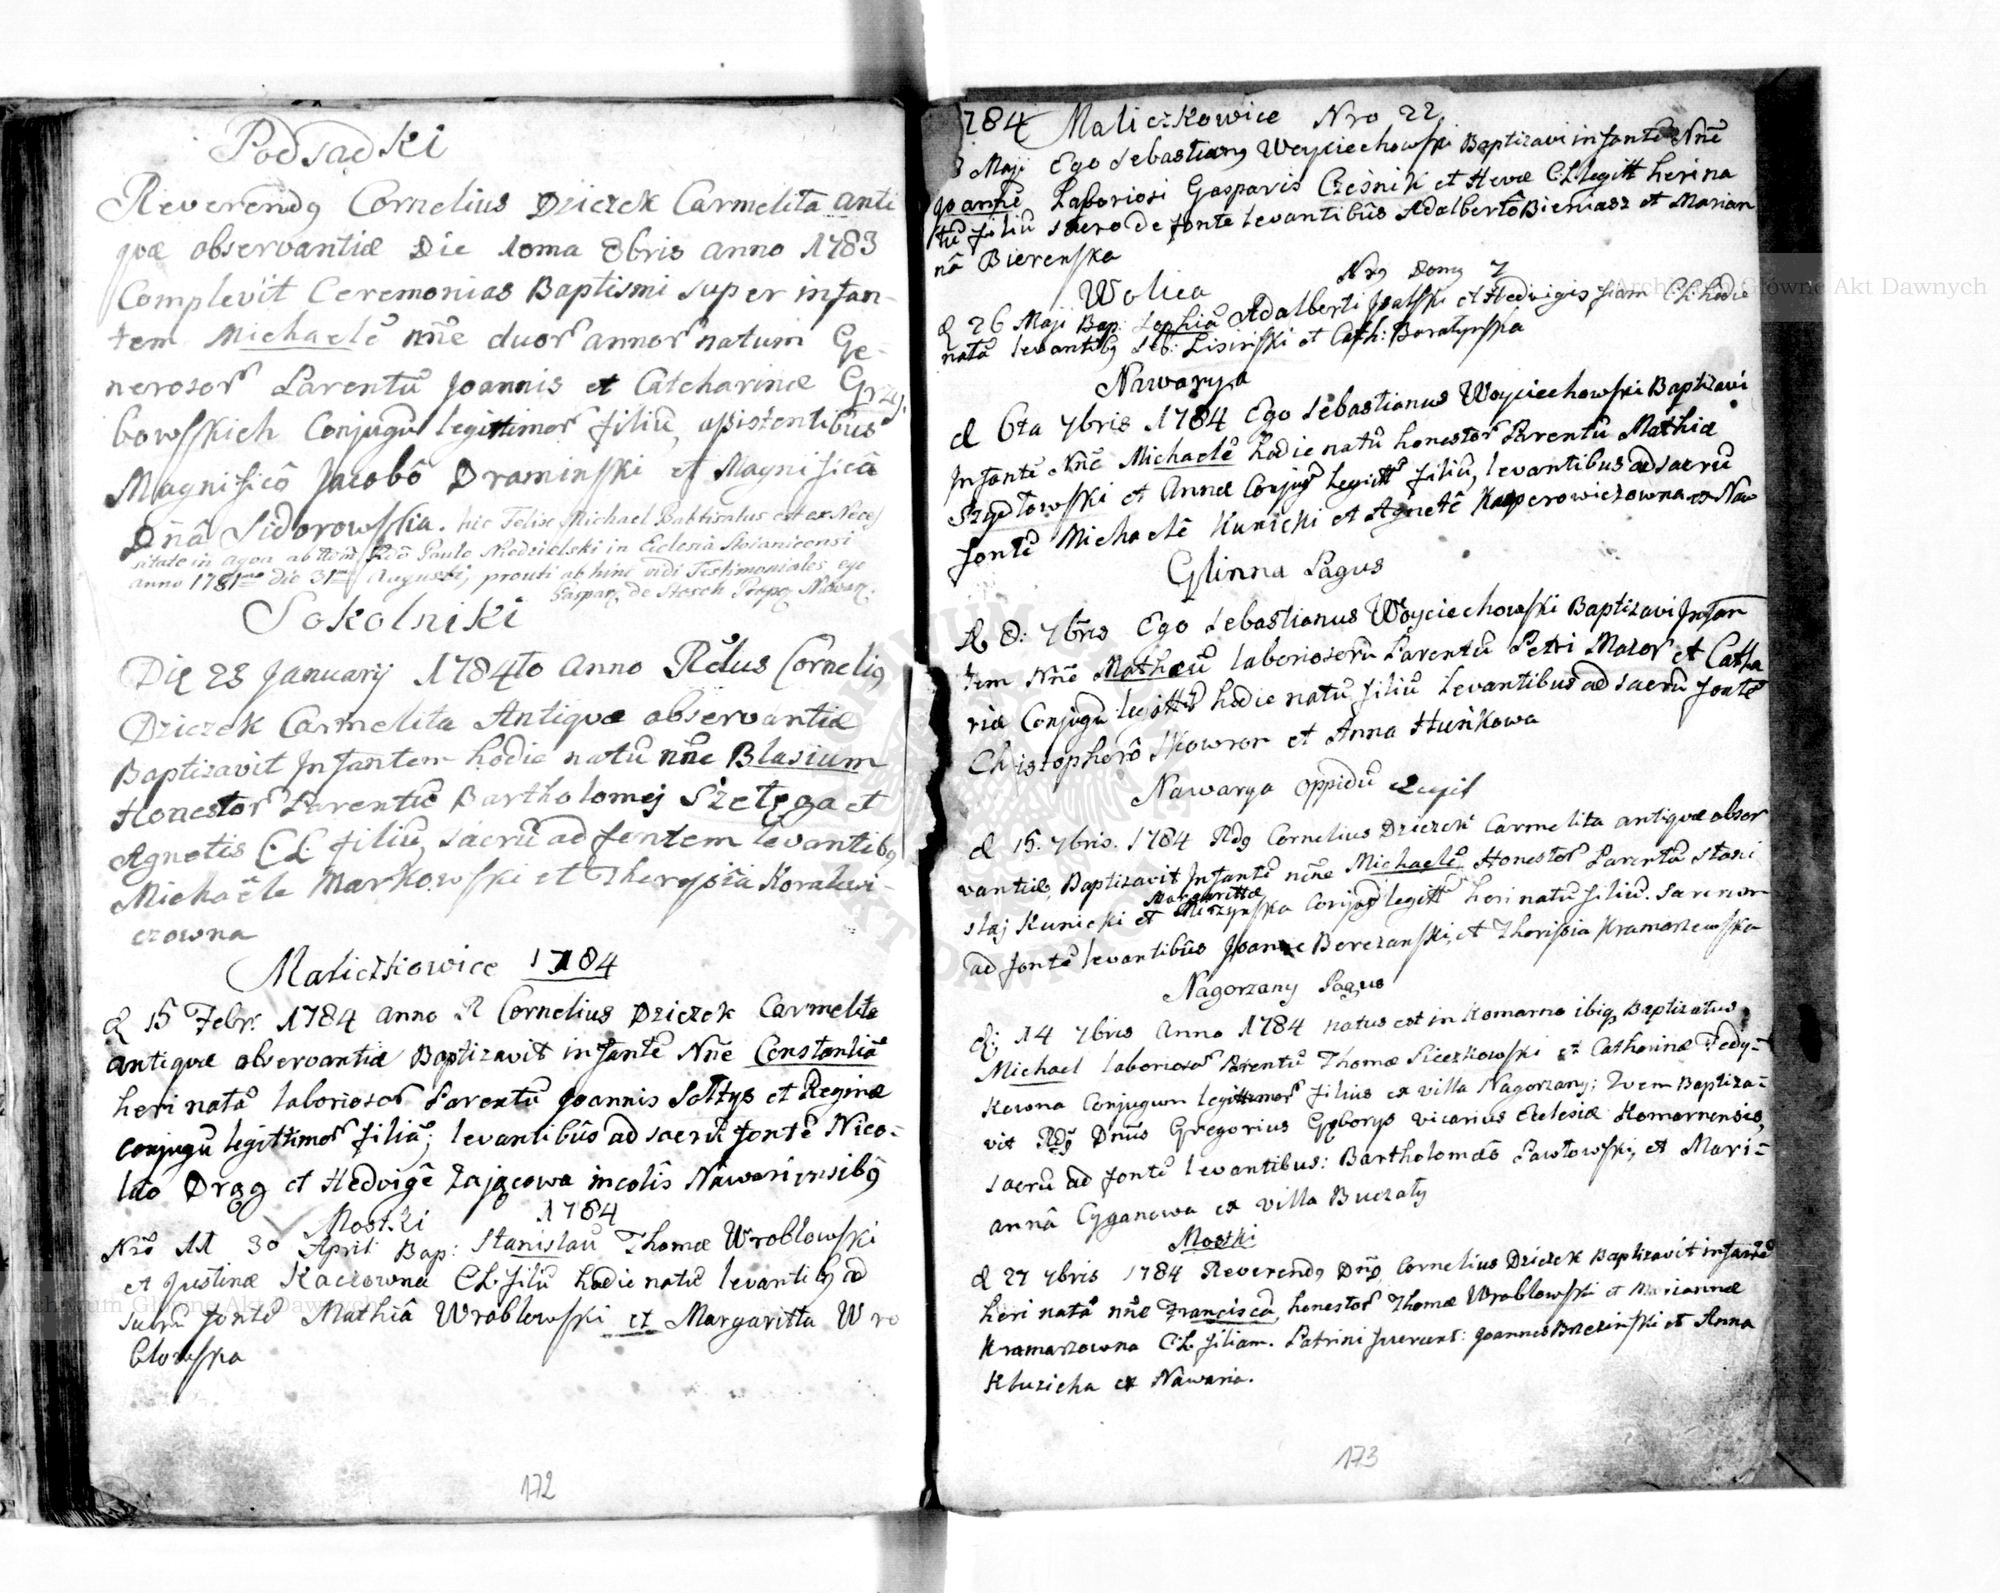 Podsadki
Reverendq Cornelius Dziczek Carmelita anti
quæ observantiæ Die 10ma 8bris anno 1783
Complevit Ceremonias Baptismi super infan-
tem Michaelē nn̄e duor̄ annor̄ natum Ge-
neroror̄ Parentū Joannis et Catcharinæ Grzy-
bowskich Conjugū legittimor̄ filiū, assistentibus
Magnificô Jacobô Draminski et Magnificâ
Dn̄â Sidorowskia. hic Felix Michael Babtisatus est ex Neces
sitate in aqua ab Paulo Niedzielski in Eclesia Stoianicensi
anno 1781mo die 31ma Augusti, prouti ab hinc vidi Testimoniales ego
Gasparq de Storch Præpq Nawar.
Sokolniki
Die 28 January 1784to anno Rdus Cornelig
Dziczek Carmelita Antiquæ observantiæ
Baptizavit Infantem hodie natū nn̄e Blasium
Honestor̄ Parentū Bartholomej Szeląga et
Agnetis C.L. filiū, sacrū ad fontem levantibq
Michaële Markowski et Theressia Koralewi-
czowna
Maliczkowice 1784
d 15 Febr: 1784 anno R Cornelius Dziczek Carmelita
antiquæ observantiæ Baptizavit infantē Nn̄e Constantiā
heri natā laborioror̄ Parentū Joannis Sołtys et Reginæ
conjugū legittimor̄ filiā; levantibûs ad sacrū fontē Nico-
lao Drąg et Hedvigē Zającowa incolis Nawariensibq
Mostki 1784
Nro 11 30 April Bap: Stanislaū Thomæ Wroblowski
et Justinæ Kaczowna C.L. filiū hodie natū levantibq ad
sacrū fontē Mathiâ Wroblowski et Margaritta Wro
blowska
172
1784 Maliczkowice Nro 22
8 Maji Ego Sebastianq Woyciechowski Baptizavi infantē Nn̄e
Joannē Laboriosi Gasparis Cześnik et Hevæ C.L. legitt heri na
tū filiū sacro de fonte levantibûs Adalbertô Bieniasz et Marian
nâ Bierenska
Wolica Nrq Domq 7
d 26 Maji Bap: Sophiā Adalberti et Hedvigis fiam C.L. hodie
natā levantibq Seb: Lisinski et Cath: Baratynska
Nawarya
d 6ta 7bris 1784 Ego Sebastianus Woyciechowski Baptizavi
Infantē Nn̄e Michaelē hodie natū honestor̄ Parentū Mathiæ
Szydłowski et Annæ Conjug Legitt filiū, levantibus ad sacrū
fontē Michaelē Kunicki et Agnetē Kasperowiczowna Naw
Glinna Pagus
d 8: 7bris Ego Sebastianus Woyciechowski Baptizavi Infan
tem Nn̄e Mathæū laboriosorū Parentū Petri Mazor et Catha
rinæ Conjugū legitt hodie natū filiū levantibus ad sacrū fontē
Christophorô Skowron et Anna Huńkowa
Nawarya oppidū
d 15. 7bris. 1784 Rdq Cornelius Dziczek Carmelita antiquæ obser
vantiæ, Baptizavit Infantē nn̄e Michaelē Honestor̄ Parentū Stani
slaj Kunicki et Margarittæ Conjug legitt heri natū filiū. Sacrum
ad fontē levantibûs Joanne Berezanski, et Therissia Kramarzewska
Nagorzany Pagus
d: 14 7bris Anno 1784 natus est in Komarno ibiq Baptizatus
Michael laboriosor̄ Parentū Thomæ Sieczkowski et Catharinæ Fedy-
kowna Conjugum legittimor̄ filius ex villa Nagorzany; Quem Baptiza-
vit Rdq Dn̄us Gregorius Gęborys vicarius Eclesiæ Komarnensis,
sacrū ad fontē levantibus: Bartholomæô Pawłowski, et Mari-
annâ Cyganowa ex villa Buczały
Mostki
d 27 7bris 1784 Reverendq Dn̄q Cornelius Dziczek Baptizavit infantē
heri natā nn̄e Franciscā, honestor̄ Thomæ Wroblowski et Mariannæ
Kramarzowna C.L. filiam. Patrini fuerunt: Joannes Brzezinski et Anna
Kluzicha ex Nawaria.
173
Archiwum Główne Akt Dawnych
Archiwum Główne Akt Dawnych